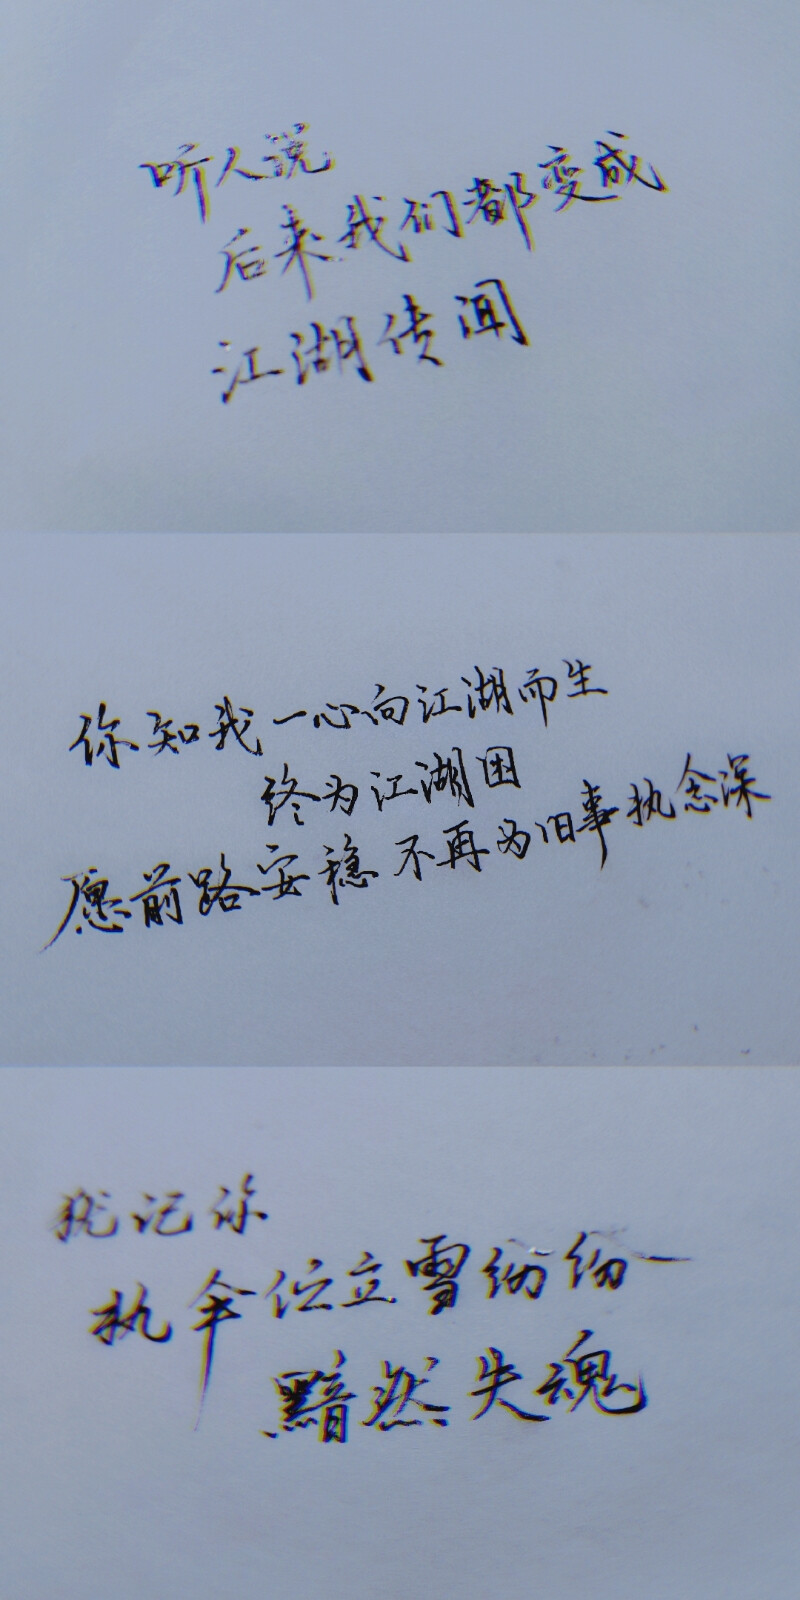 听人说
后来我们都变成
江湖传闻
你知我一心向江湖而生
终为江湖困
愿前路安稳 不再为旧事执念深
犹记你
执伞伫立雪纷纷
黯然失魂